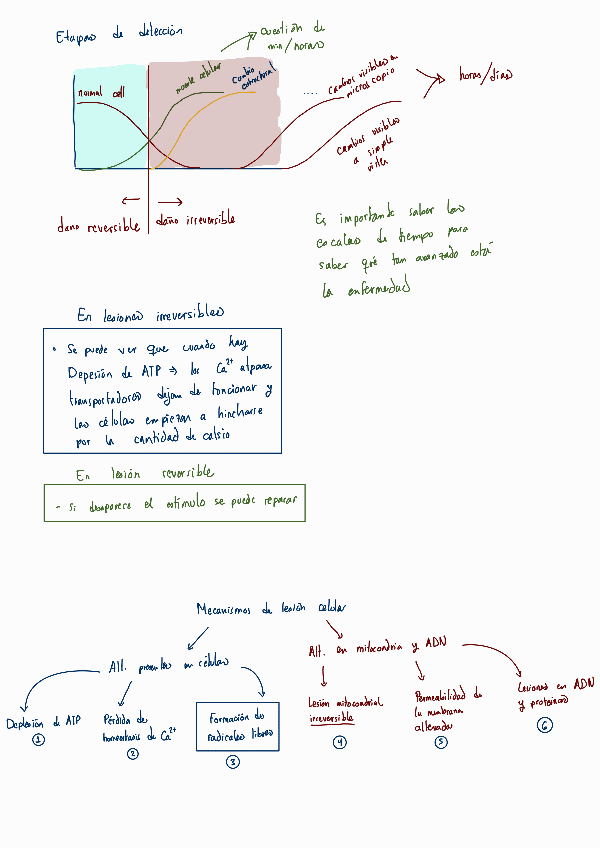 Etapas de detección
cuestión de
min/horas
normal cell
muerte celular
Cambio
estructural
.... cambios visibles a
microscopio
horas/días
cambios visibles
a simple
vista
daño reversible
daño irreversible
Es importante saber las
escalas de tiempo para
saber qué tan avanzado está
la enfermedad
En lesiones irreversibles
• Se puede ver que cuando hay
Depesión de ATP ⇒ los Ca²⁺ atpasa
transportadores dejan de funcionar y
las células empiezan a hincharse
por la cantidad de calsio
En lesión reversible
- Si desaparece el estímulo se puede reparar
Mecanismos de lesión celular
Alt. presentes en células
Alt. en mitocondria y ADN
Depleción de ATP
①
Pérdida de
homeostasis de Ca²⁺
②
Formación de
radicales libres
③
Lesión mitocondrial
irreversible
④
Permeabilidad de
la membrana
alterada
⑤
Lesiones en ADN
y proteínas
⑥